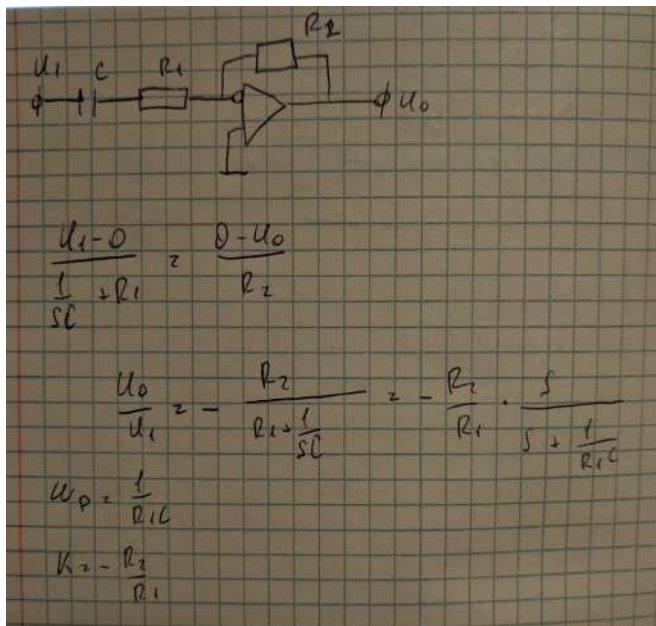 R2
U1 C R1
U0
(U1-0)/(1/SC + R1) = (0-U0)/R2
U0/U1 = - R2/(R1+1/SC) = - R2/R1 · S/(S + 1/R1C)
ωp = 1/R1C
K = - R2/R1